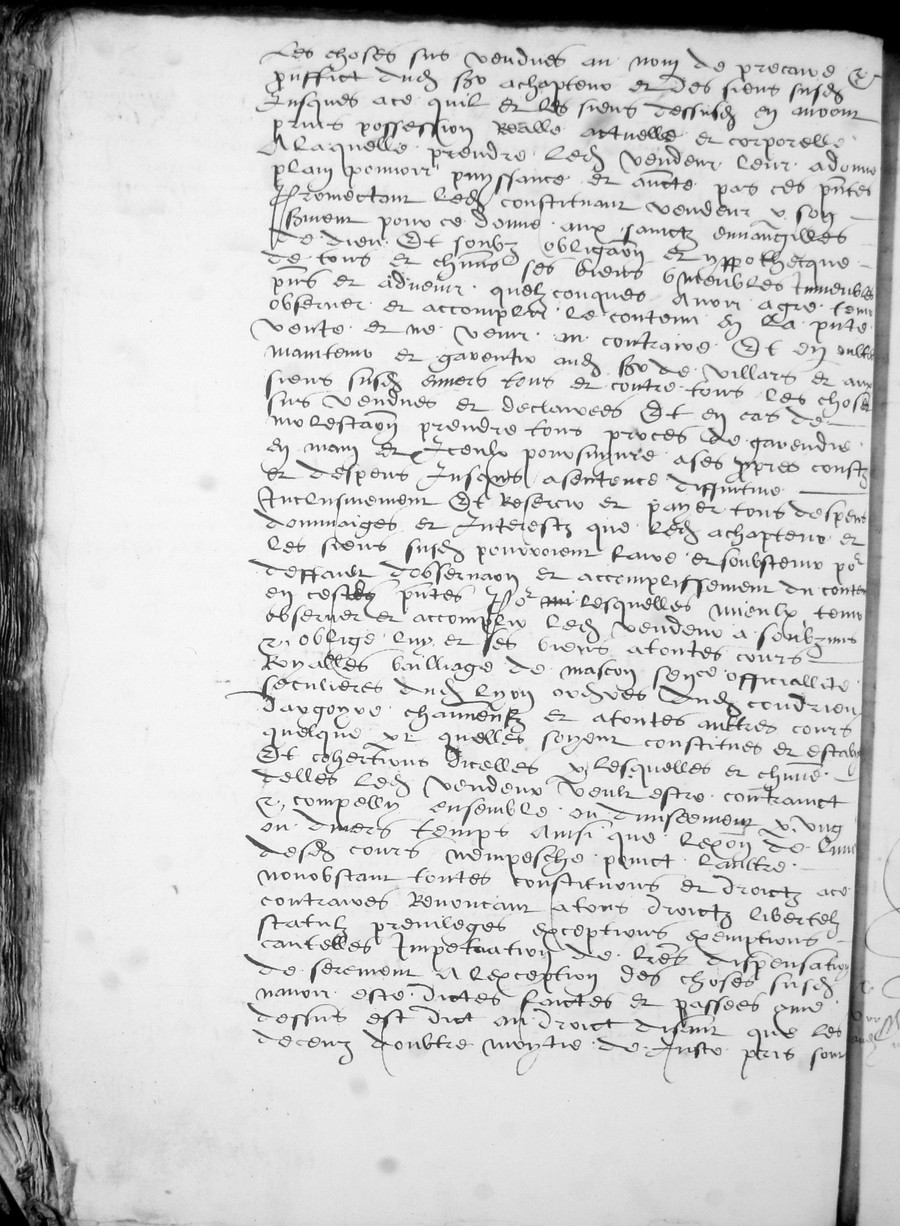 Les choses sus vendues au nom de precaire &
prouffict dud sr achapteur et des siens susd
Jusques ace quil et les siens dessusd en auront
prins possession Realle actuelle et corporelle
A laquelle prendre led vendeur leur adonne
plain pouvoir puyssance et aucte par ces pntes
Promectant led constituant vendeur p son
serment pour ce donne aux sainctz euuangilles
de dieu Et soubz obligaon et yppothecque
de tous et chuns ses biens meubles Immeubles
pns et aduenir quelzconques Auoir agre tenir
obseruer et accomplir le contenu En La pnte
vente et ne venir au contraire Et En oultre
maintenir et garentir aud sr de villars et aux
siens susd enuers tous et contre tous les choses
sus vendues et declairees Et en cas de
molestaon prendre tous proces de garendie
en main et Iceulx poursuiure ases ppres coustz
et despens Jusques asentence diffinitiue
Inclusiuement Et Reserair et payer tous despens
dommaiges et Interestz que led achapteur et
les siens susd pourroient faire et soubstenir por
deffault dobseruaon et accomplissement du contenu
en ces pntes Por lesquelles mieulx tenir
obseruer et accomplir led vendeur a soubzmis
& oblige luy et ses biens atoutes cours
Royalles bailliage de mascon sence officiallite
seculieres dud lyon ordres dud coundrieu
Dargoyre chaument et atoutes aultres cours
quelque et quelles soyent constitues et establ
Et cohertions dicelles p lesquelles et chune
delles led vendeur veult estre contrainct
& compelly ensemble ou diuisement p ung
ou diuers temps Ainsi que lexon de lune
desd cours nempesche poinct laultre
nonobstant toutes constituons et droictz ace
contraires Renoncant atous droictz libertez
statulz preuileges exceptions exemptions
cautelles Impetration de lres dispensation
de serement A lexception des choses susd
nauoir este dictes faictes et passees come
dessus est dict au droict disant que les
deceuz doultre moytie de Juste pris sont